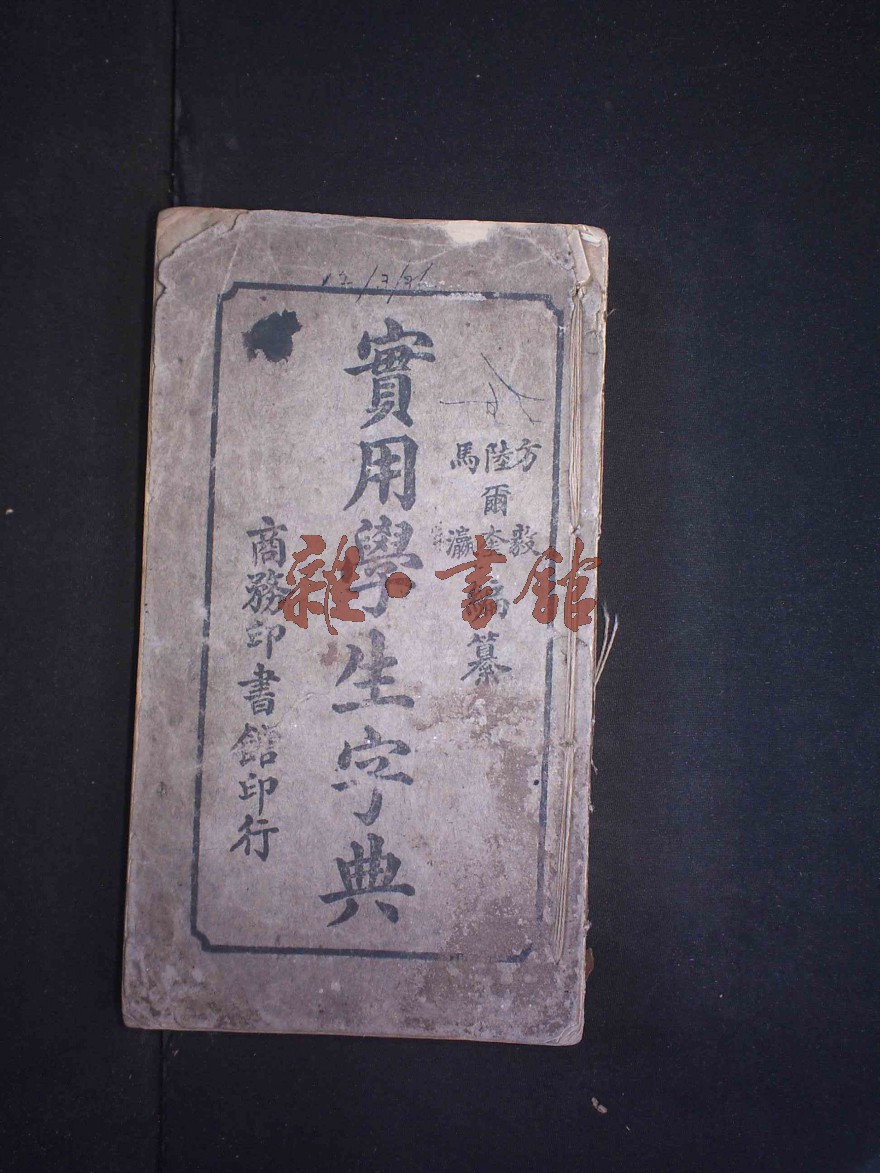 方毅
陸爾奎
馬瀛
編纂
實用學生字典
商務印書館印行
雜·書館